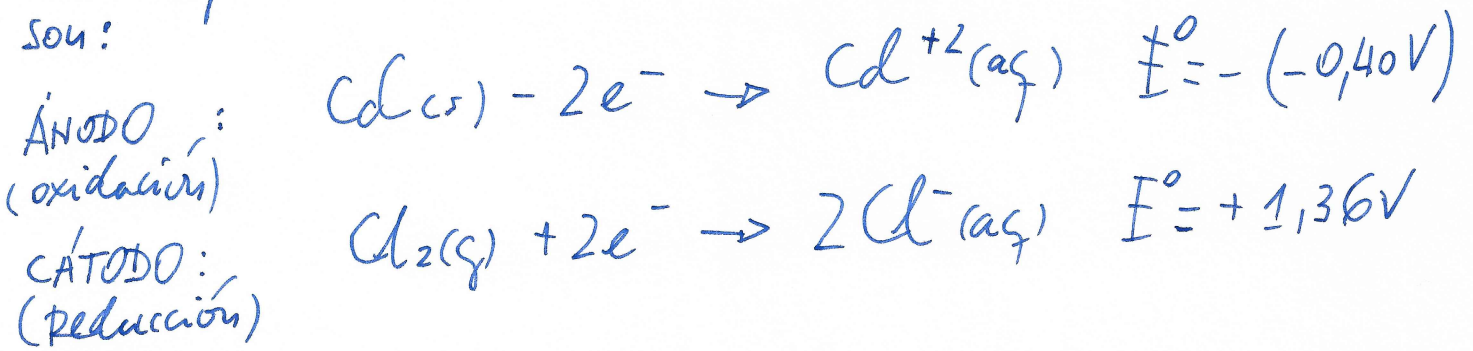 son:
ÁNODO :
(oxidación)
Cd(s) - 2e⁻ → Cd⁺²(aq) E⁰= - (-0,40V)
CÁTODO:
(Reducción)
Cl₂(g) + 2e⁻ → 2Cl⁻(aq) E⁰= + 1,36V